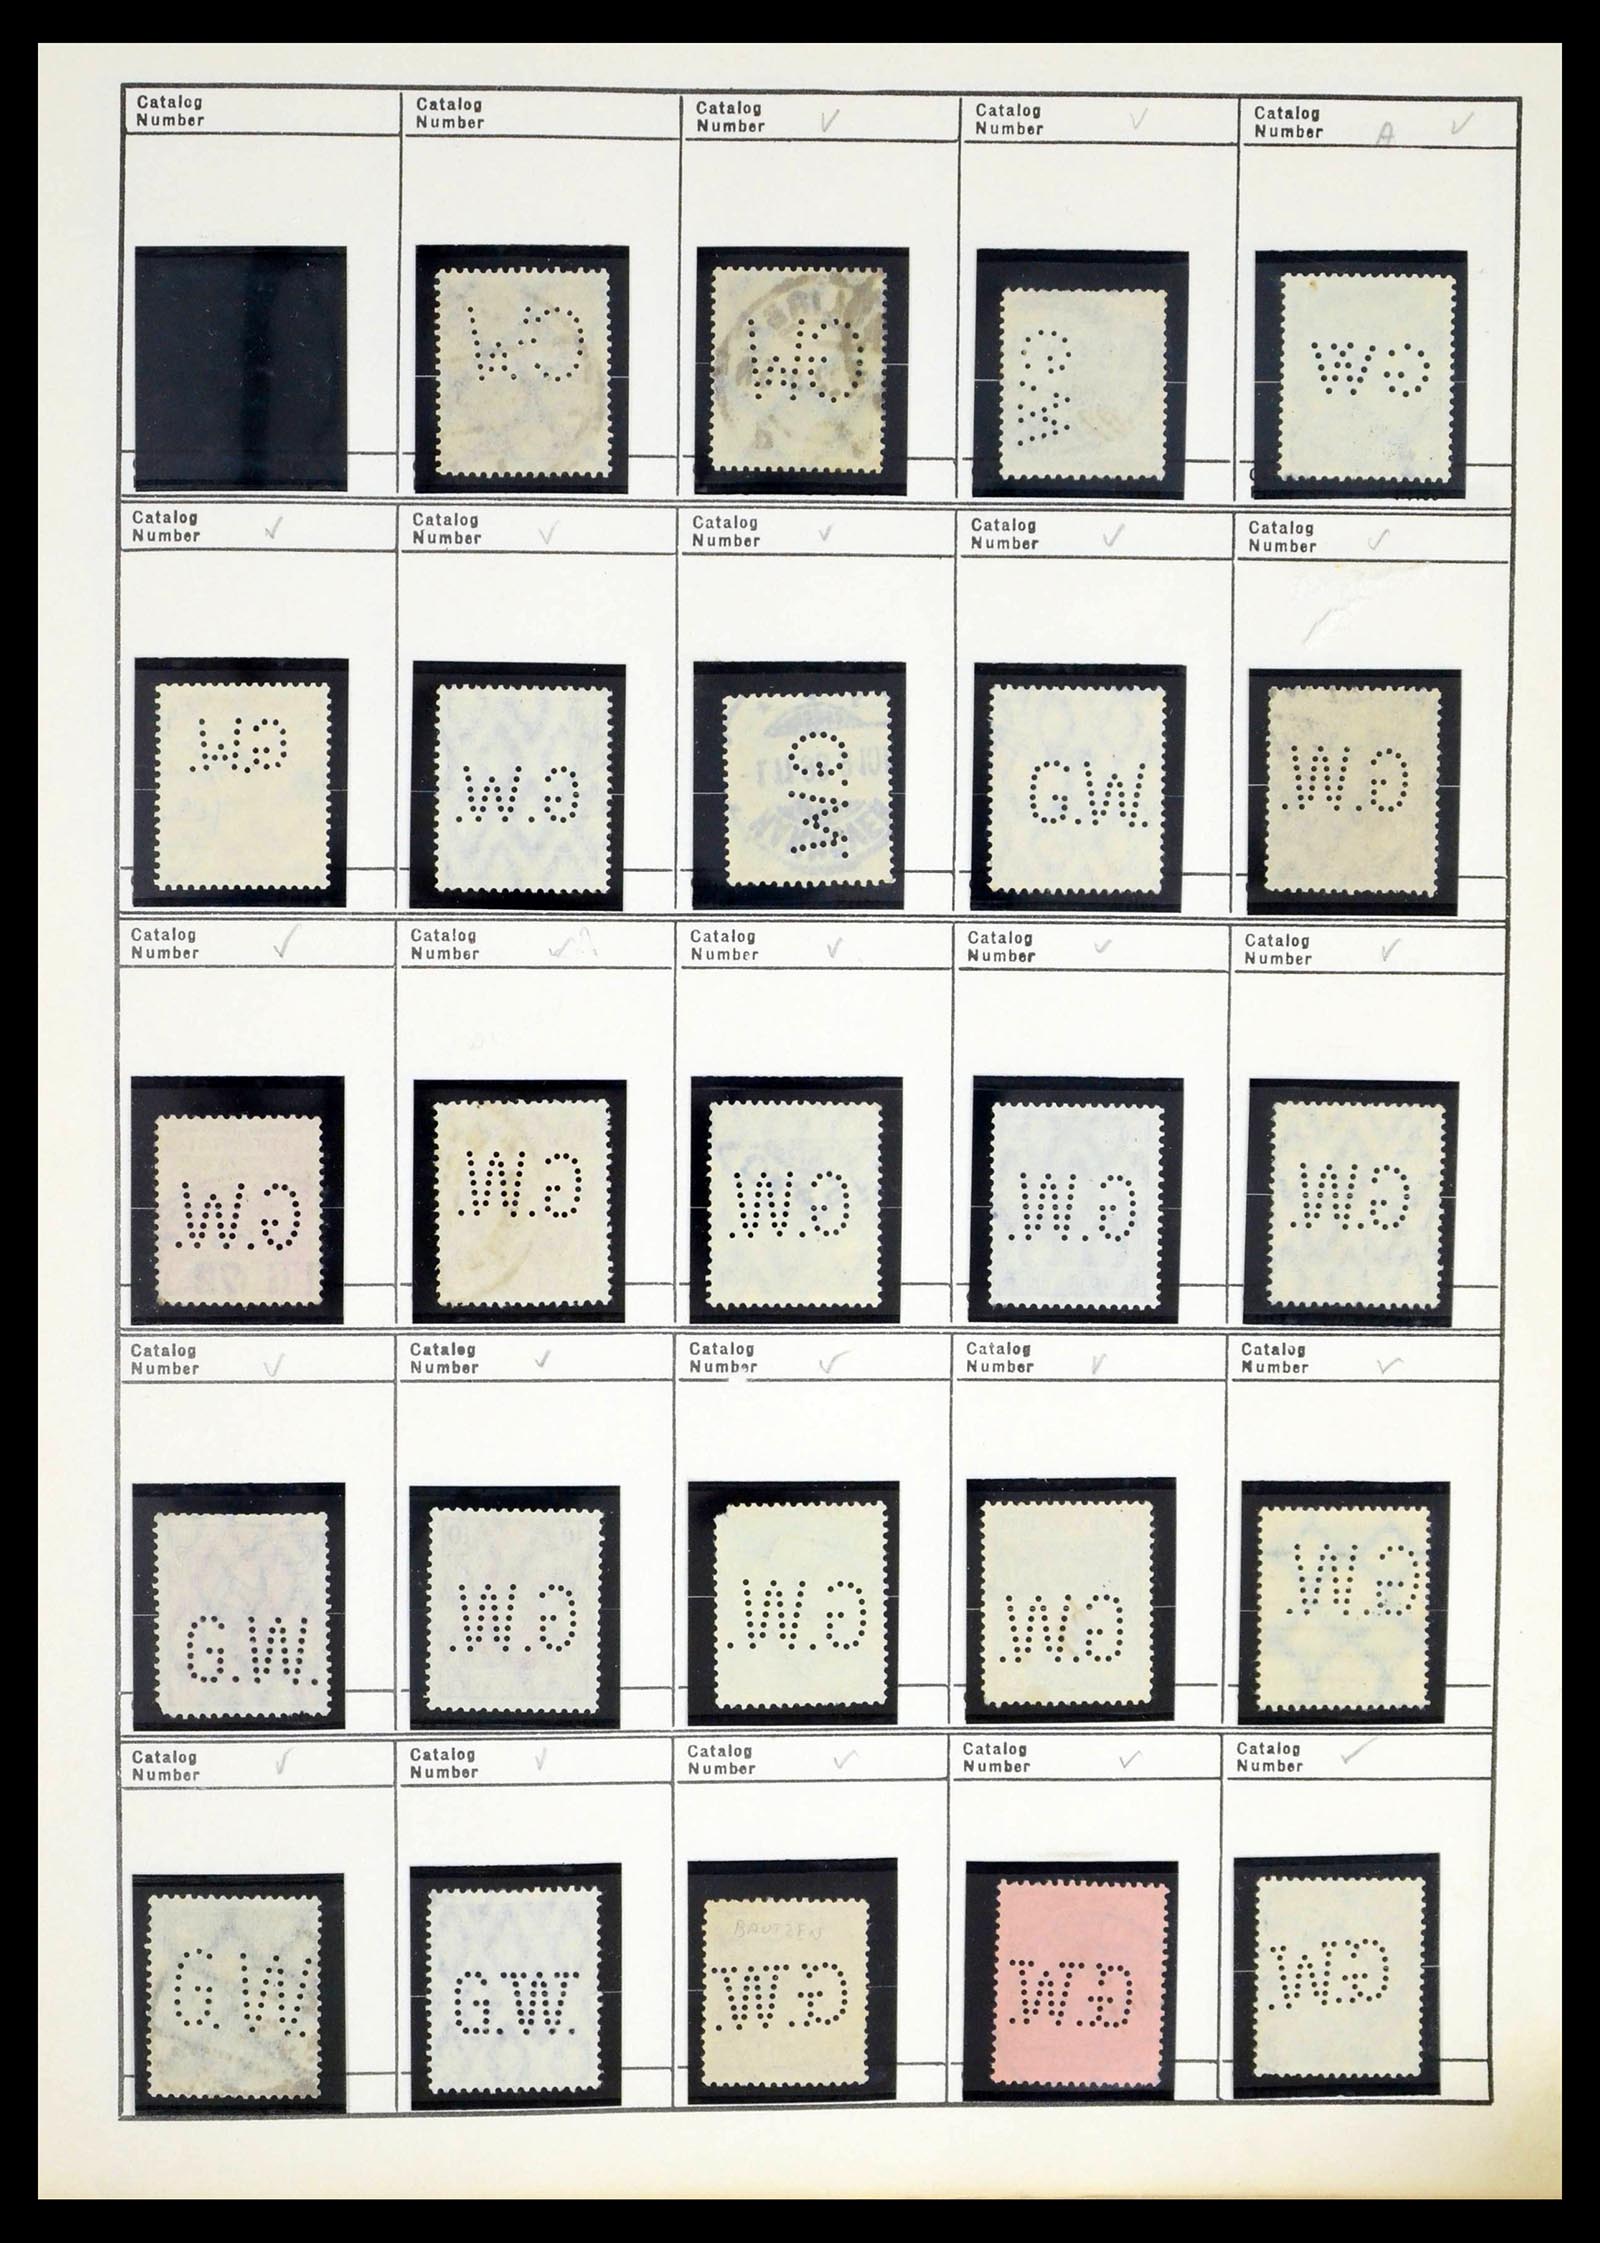 Catalog
Number
Catalog
Number
Catalog
Number ✓
Catalog
Number ✓
Catalog
Number A ✓
Catalog
Number ✓
Catalog
Number ✓
Catalog
Number ✓
Catalog
Number ✓
Catalog
Number ✓
G.W.
G.W.
G.W.
G.W.
G.W.
Catalog
Number ✓
Catalog
Number ✓
Catalog
Number ✓
Catalog
Number ✓
Catalog
Number ✓
G.W.
G.W.
G.W.
G.W.
G.W.
Catalog
Number ✓
Catalog
Number ✓
Catalog
Number ✓
Catalog
Number ✓
Catalog
Number ✓
G.W.
G.W.
G.W.
G.W.
G.W.
Catalog
Number ✓
Catalog
Number ✓
Catalog
Number ✓
Catalog
Number ✓
Catalog
Number ✓
BAUTZEN
G.W.
G.W.
G.W.
G.W.
G.W.